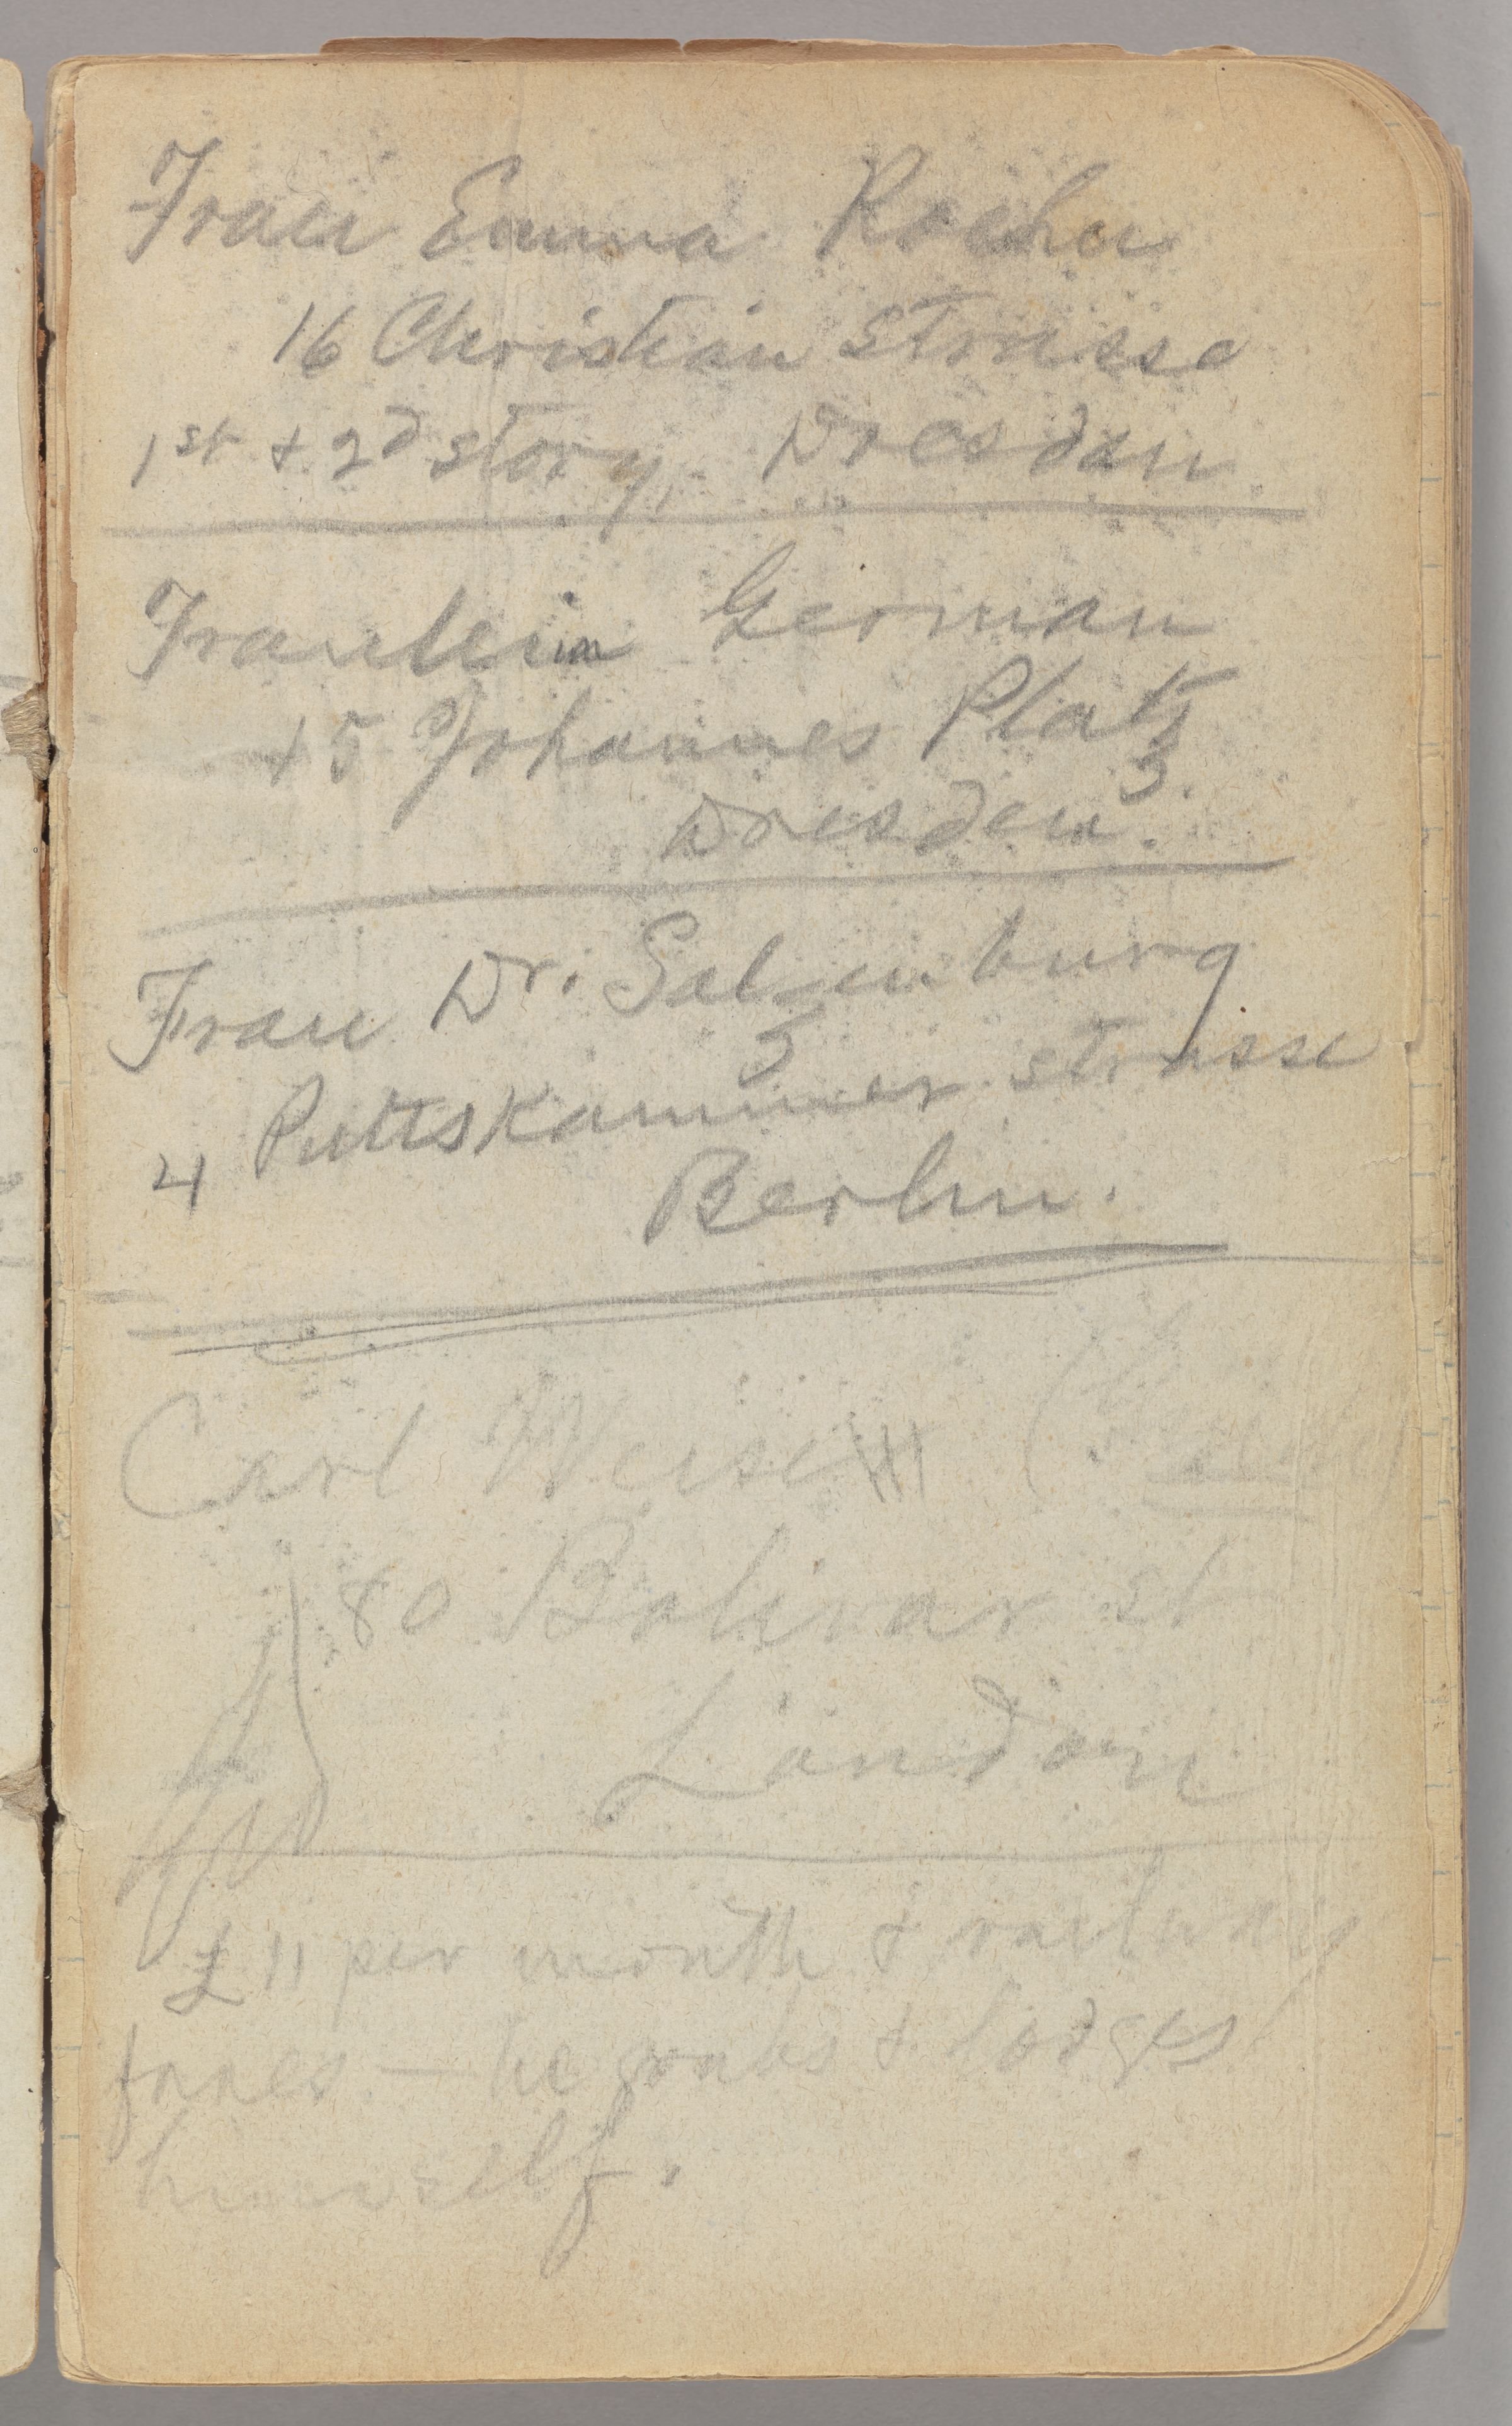 Frau Emma Roehn
16 Christian Strasse
1st + 2d story, Dresden
Fraulein German
+5 Johannes Platz
Dresden.
Frau Dr. Salzenburg
4 Puttskammer strasse
Berlin.
Carl Weise
80 Bolivar st
London
£11 per month & railway
fares — he grubs & lodges
himself.